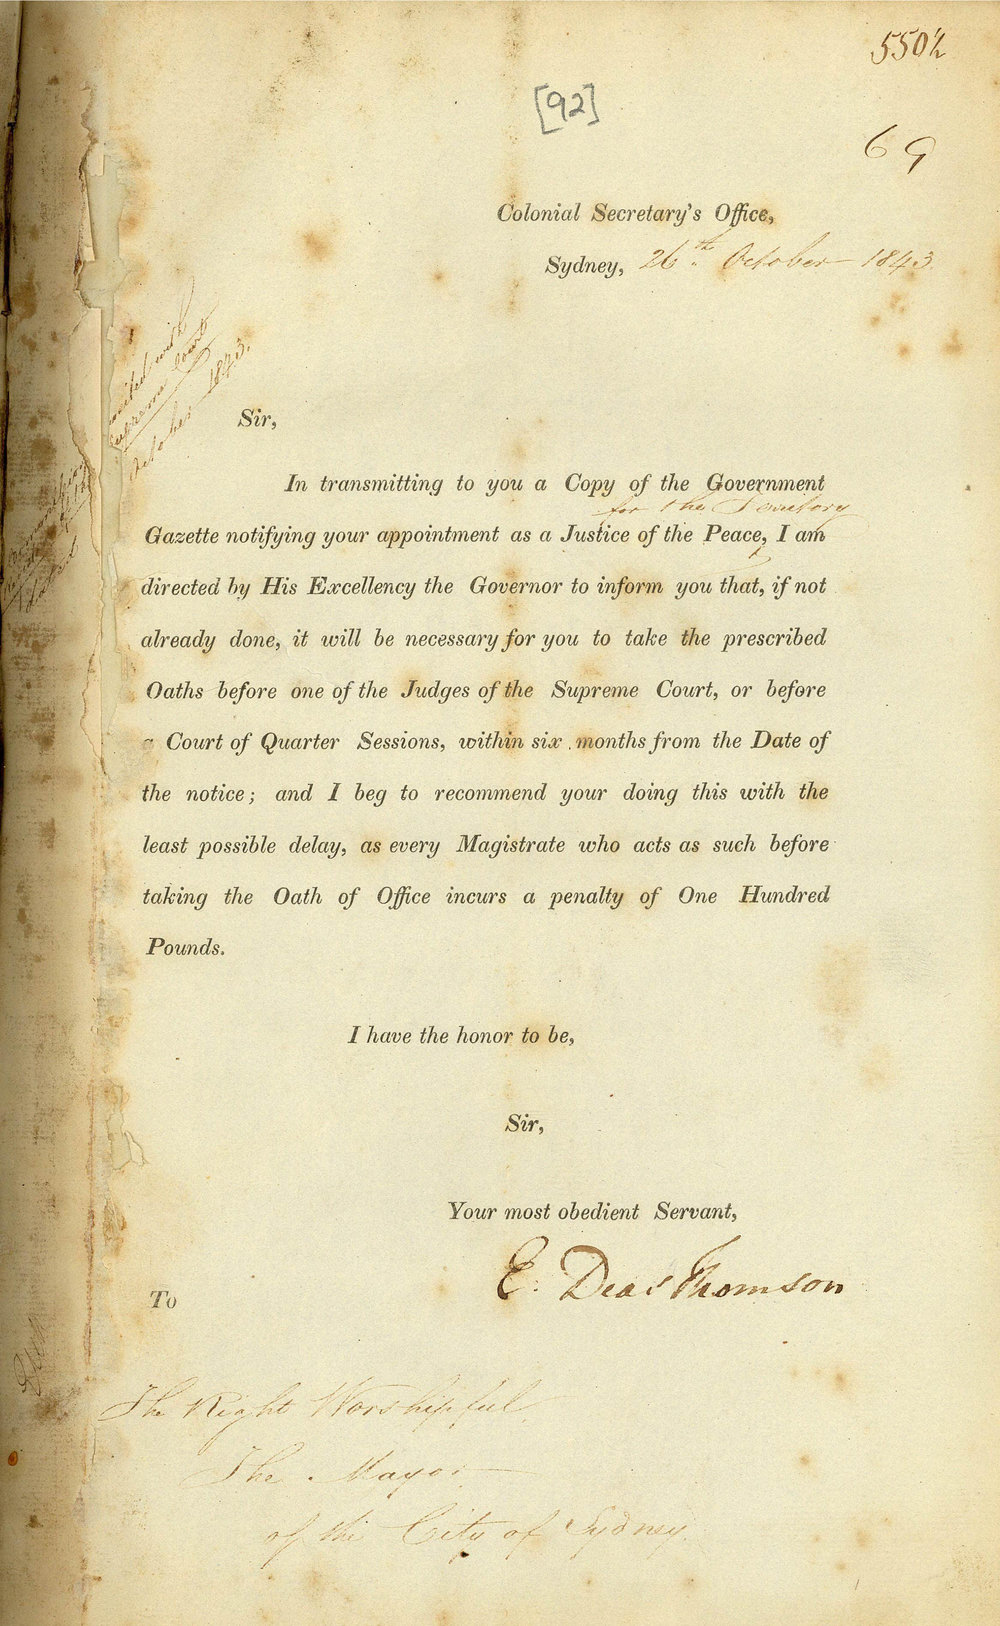 550½
[92]
69
Colonial Secretary's Office,
Sydney, 26th October 1843.
Supreme Court
October 1843.
Sir,
In transmitting to you a Copy of the Government
for the Territory
Gazette notifying your appointment as a Justice of the Peace, I am
directed by His Excellency the Governor to inform you that, if not
already done, it will be necessary for you to take the prescribed
Oaths before one of the Judges of the Supreme Court, or before
a Court of Quarter Sessions, within six months from the Date of
the notice; and I beg to recommend your doing this with the
least possible delay, as every Magistrate who acts as such before
taking the Oath of Office incurs a penalty of One Hundred
Pounds.
I have the honor to be,
Sir,
Your most obedient Servant,
E. Deas Thomson
To
The Right Worshipful
The Mayor
of the City of Sydney.